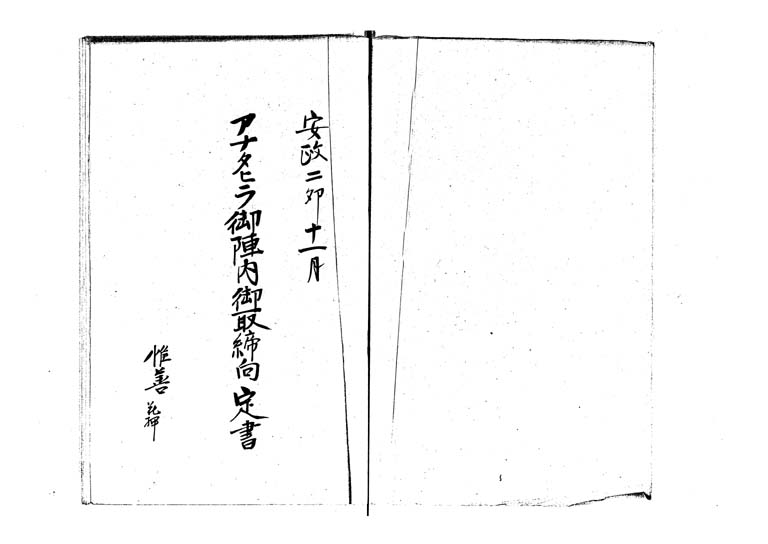 安政二卯十一月
アナタヒラ御陣内御取締向定書
惟善 花押